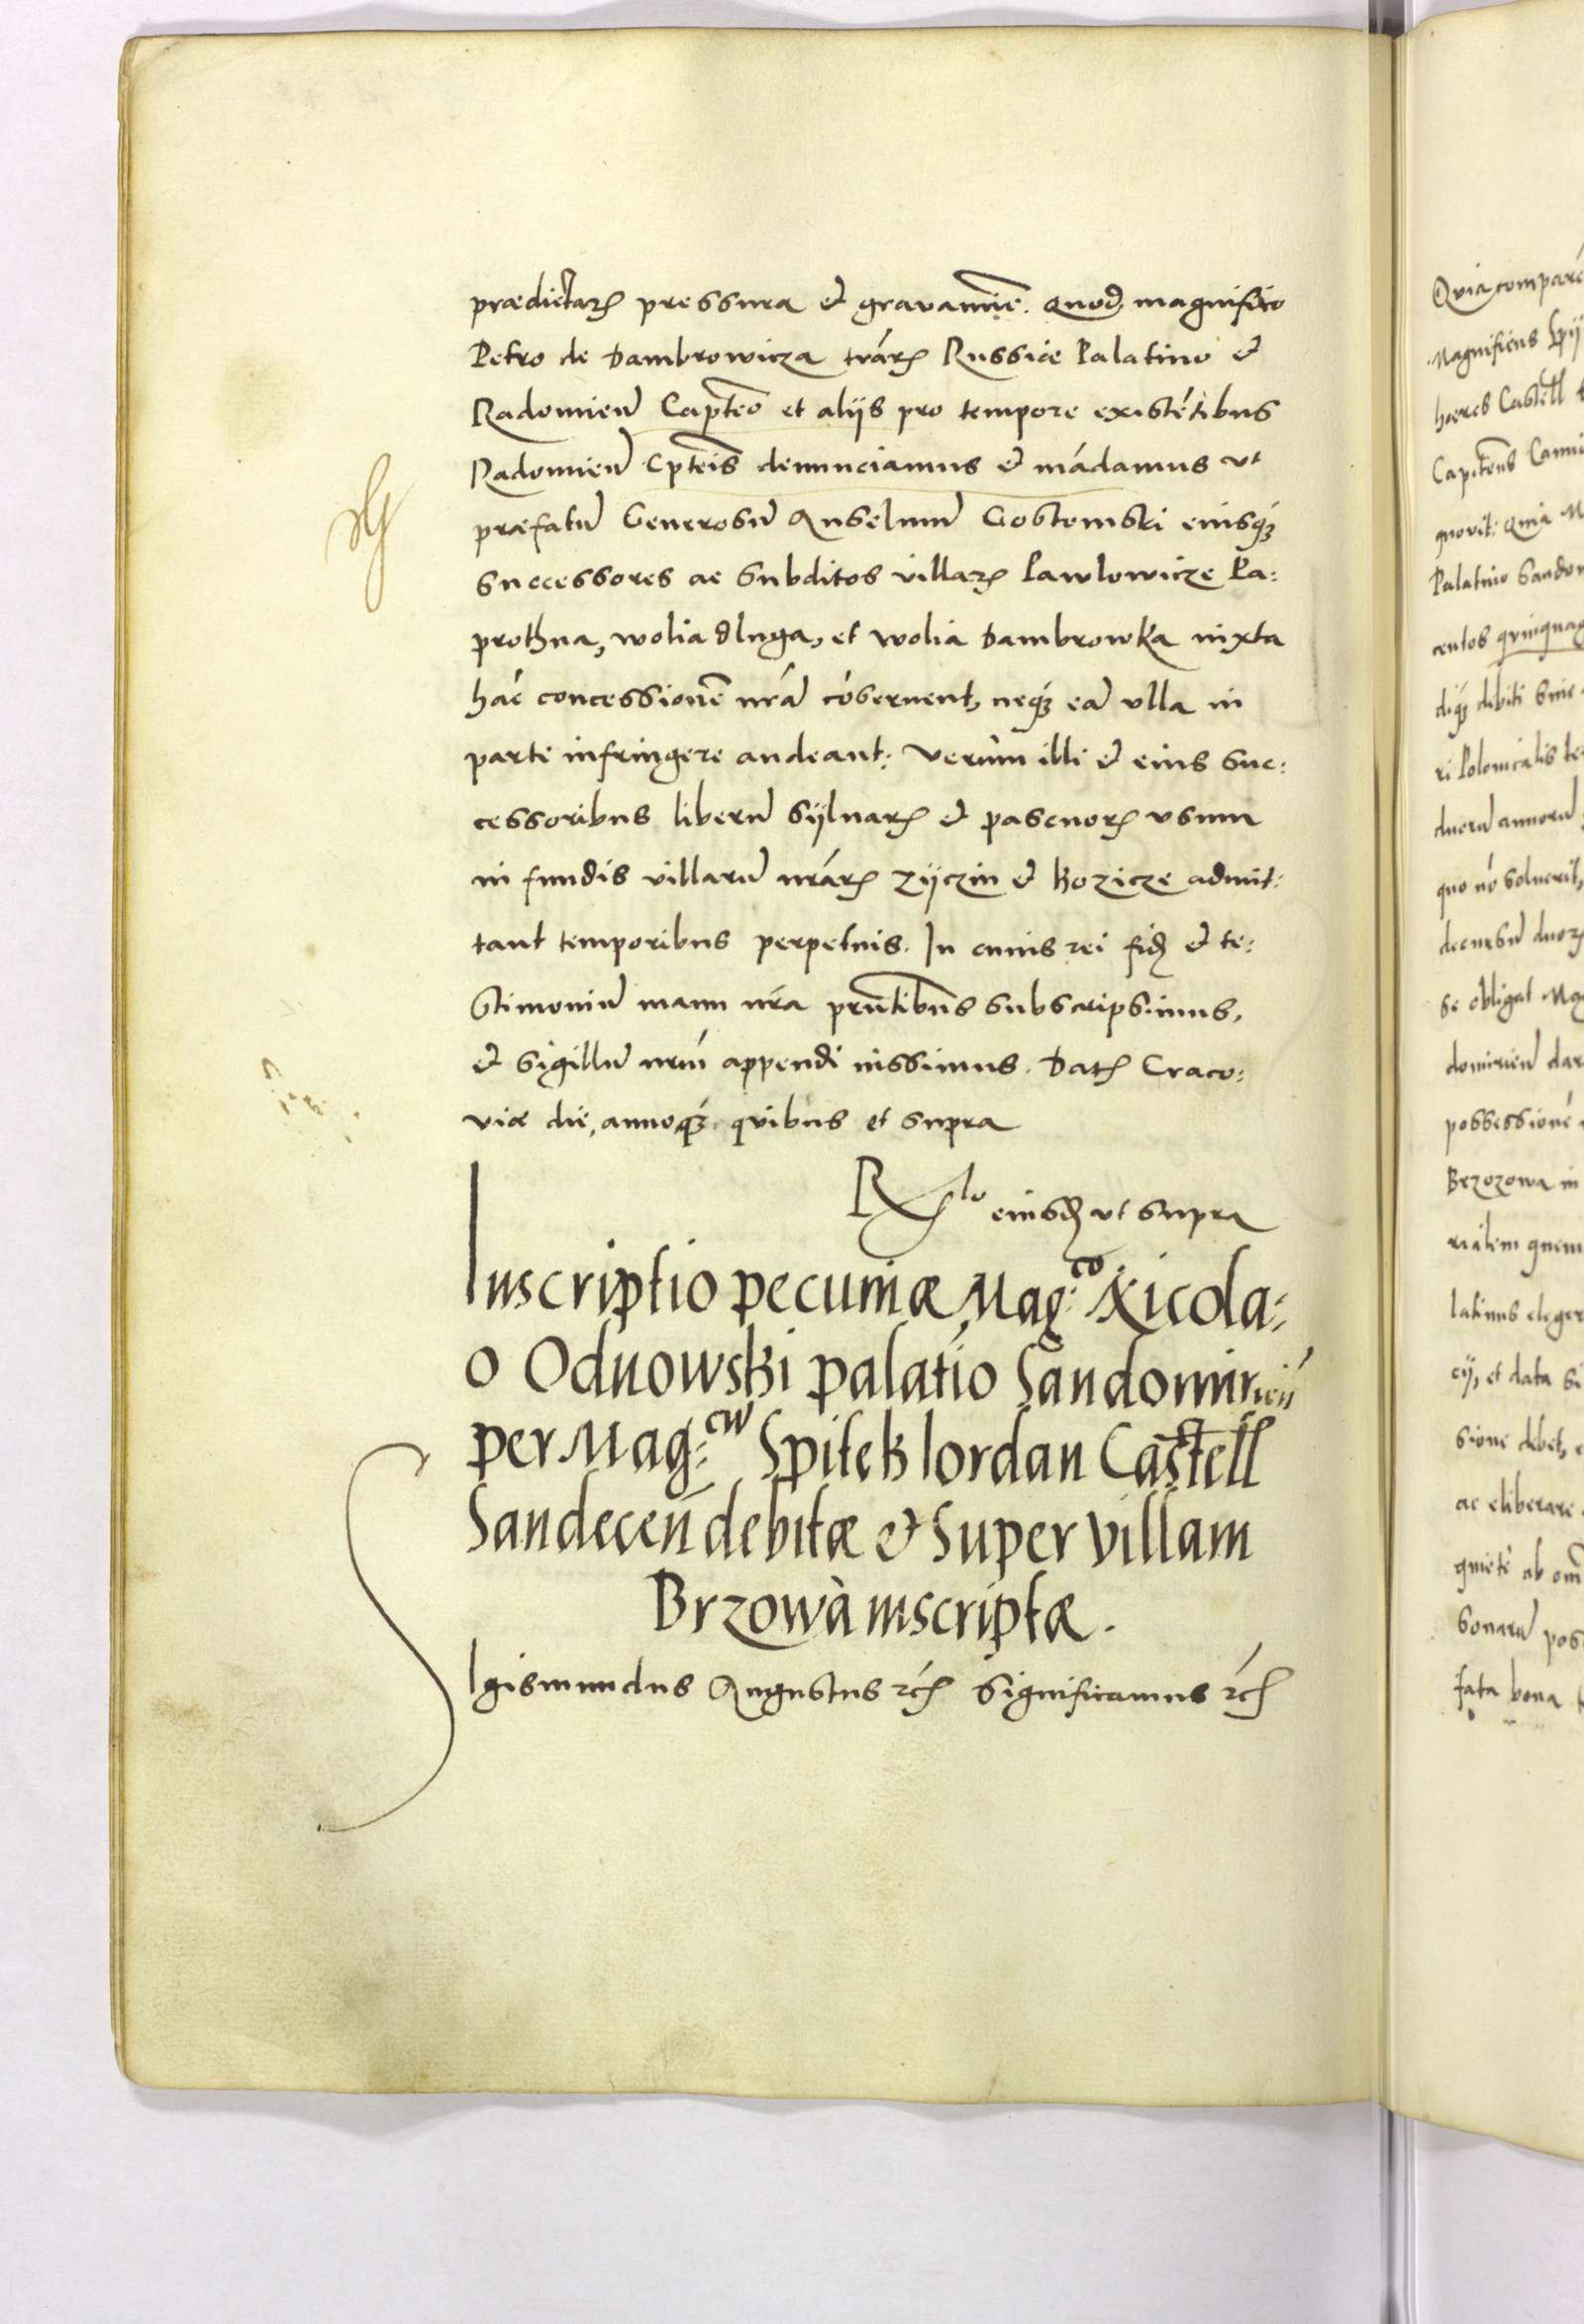 prædictarꝝ pressura et gravamīe. Quod magnifico
Petro de Dambrowicza trárꝝ Russiæ Palatino et
Radomieñ Capteo et alijs pro tempore existétibus
Radomieñ Cpteis denunciamus et mádamus vt
præfatū Generosū Anselmū Gostomski eiusqꝫ
successores ac subditos villarꝝ Pawlowicze Pa:
prothna, wolia dluga, et wolia Dambrowka iuxta
hác concessionē nrā cóservent, neqꝫ eā ulla in
parte infringere audeant: Verùm illi et eius suc:
cessoribus liberū sylvarꝝ et pascuorꝝ usum
in fundis villarū nrárꝝ Zÿczin et Kozicze admit:
tant temporibus perpetuis. In cuius rei fidē et te:
stimoniū manu nrā prñtibus subscripsimus,
et sigillū nrm̄ appendi iussimus. Datꝝ Craco:
viæ die, annoqꝫ quibus et supra
Rꝫlo eiusdē vt supra
Inscriptio pecuniæ Mag:co Nicola:
o Odnowski palatío Sandomirień
per Mag:cu Spitek Iordan Castell
Sandeceñ debitæ et super villam
Brzowà inscriptæ.
SIgismundus Augustus rcꝭ Significamus rcꝭ
Quia comparé
Magnificus Spi
hæres Castell
Capiteus Cami
gnovit: Quia M
Palatino Sandom
centos quinquag
diqꝫ debiti sui
ri Polonicalis
duorū annorū
quo nó solverit,
decursū duorꝝ
se obligat Mag
domirieñ dar
possessioné
Brzozowa in
rialem quem
latinus eleger
cij, et data
sione debet,
ac eliberare
quietè ab om̄
sonarū pos
fata bona